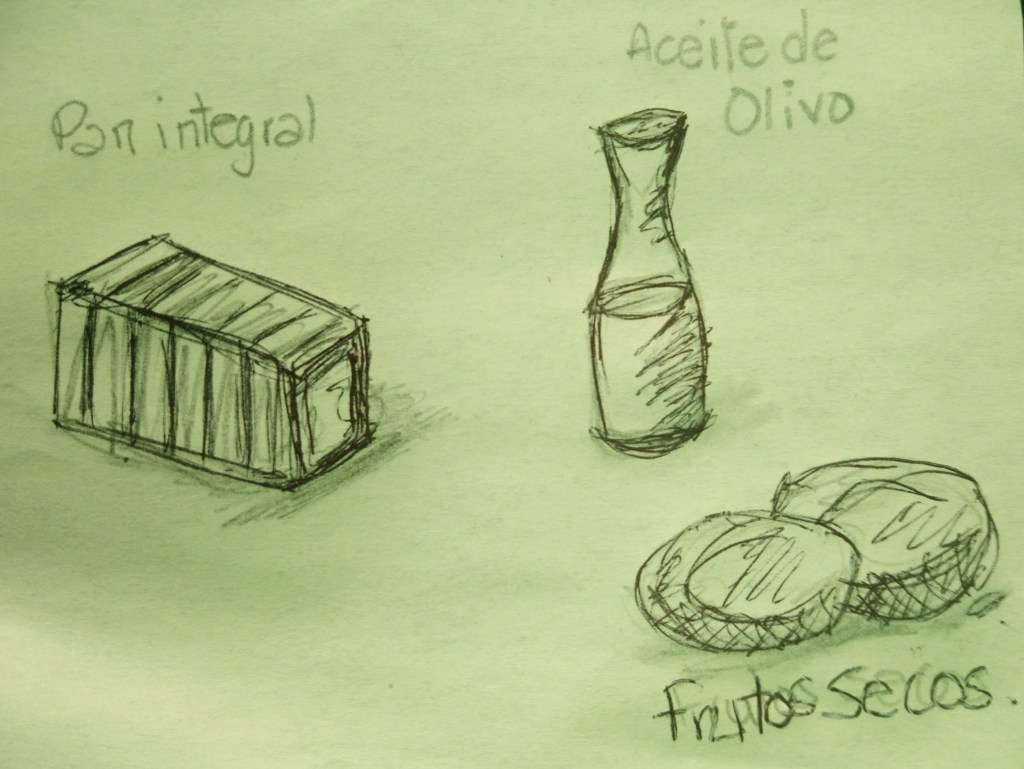 Pan integral
Aceite de
Olivo
Frutos Secos.